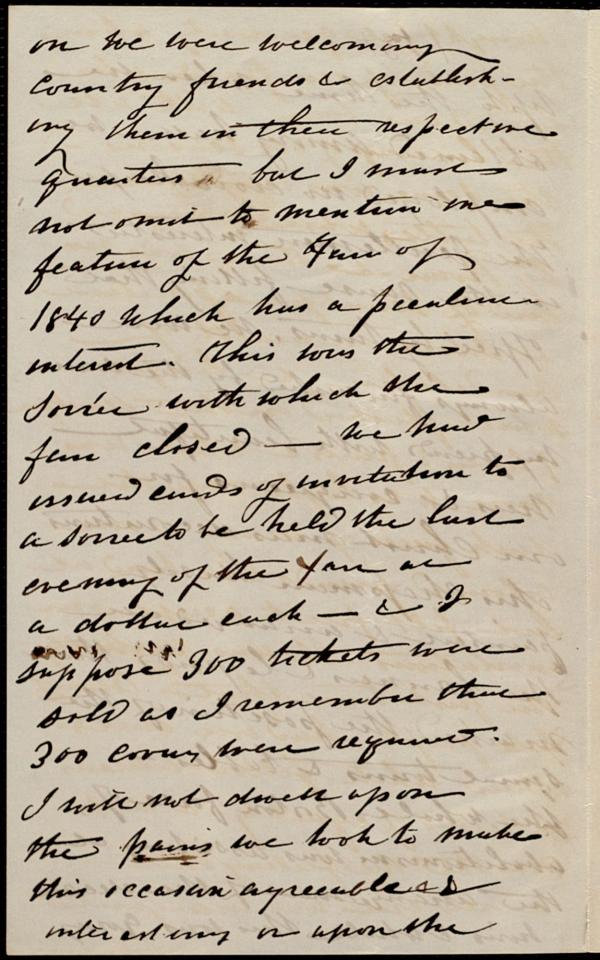 on we were welcoming
country friends & establish-
ing them in their respective
quarters but I must
not omit to mention one
feature of the Fair of
1840 which has a peculiar
interest. This was the
Soirée with which the
fair closed — we had
issued cards of invitation to
a soiree to be held the last
evening of the Fair at
a dollar each — & I
suppose 300 tickets were
sold as I remember that
300 covers were required.
I will not dwell upon
the pains we took to make
this occasion agreeable &
interesting or upon the